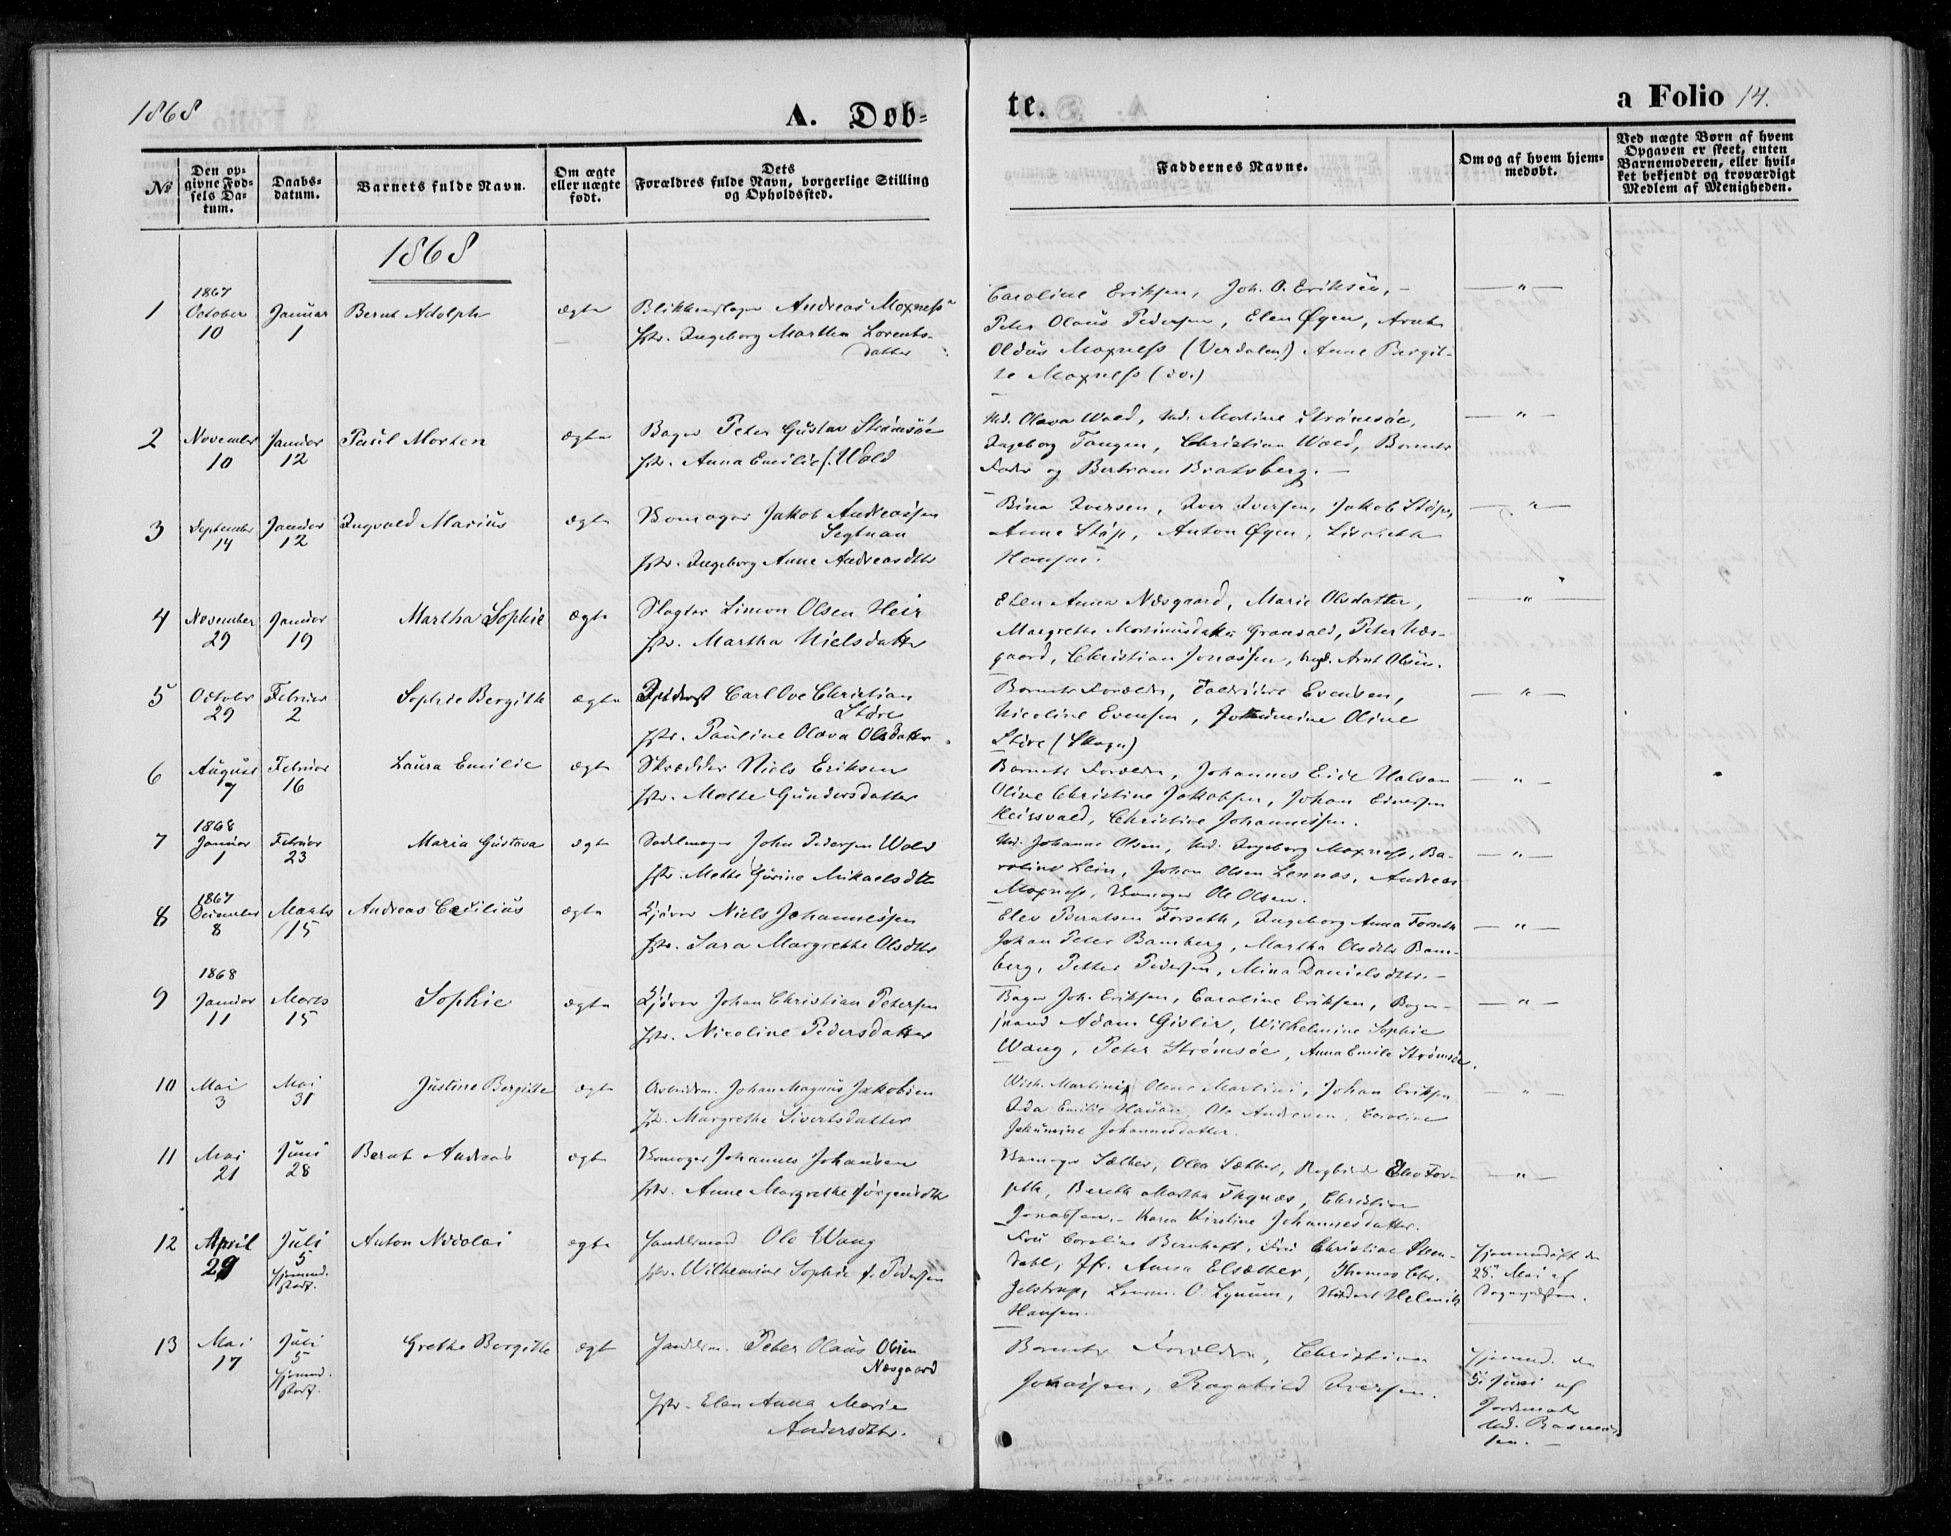 1868
A. Døb-
te.
a Folio 14.
No
Den op-
givne Fød-
sels Da-
tum.
Daabs-
datum.
Barnets fulde Navn.
Om ægte
eller uægte
født.
Dets
Forældres fulde Navn, borgerlige Stilling
og Opholdssted.
Faddernes Navne.
Om og af hvem hjem-
medøbt.
Ved uægte Børn af hvem
Opgaven er skeet, enten
Barnemoderen, eller hvil-
ket bekjendt og troværdigt
Medlem af Menigheden.
1868
1
1867
October
10
Januar
1
Bernt Adolph
ægte
Blikkenslager Andreas Moxness
Hstr. Ingeborg Martha Lorents-
datter
Caroline Eriksen, Joh. O. Eriksen,
Peter Olaus Pedersen, Elen Øyen, Arnt
Oldus Moxness (Verdalen) Anne Bergit-
te Moxness (do.)
— " —
2
November
10
Januar
12
Paul Morten
ægte
Bager Peter Gustav Strømsøe
Hstr. Anna Emilie f. Wold
Md. Olava Wold, Md. Martine Strømsøe,
Ingeborg Tangen, Christian Wold, Barnets
Fader og Bertram Bratsberg.
— " —
3
September
14
Januar
12
Ingvald Marius
ægte
Skomager Jakob Andreassen
Segtnan
Hstr. Ingeborg Anne Andreasdtr
Bina Iversen, Iver Iversen, Jakob Støp,
Anne Støp, Anton Øyen, Lisabeth
Hansen.
— " —
4
November
29
Januar
19
Martha Sophie
ægte
Slagter Simon Olsen Heir
Hstr. Martha Nielsdatter
Elen Anna Næsgaard, Marie Olsdatter,
Margrethe Martinusdatter Granvold, Peter Næs-
gaard, Christian Jonassen, Arnt Olsen.
— " —
5
October
29
Februar
2
Sophie Bergithe
ægte
Carl Ove Christian
Støre
Hstr. Pauline Olava Olsdatter
Barnets Forældre, Evensen,
Nicoline Evensen, Oline
Støre (Skogn)
— " —
6
August
7
Februar
16
Laura Emilie
ægte
Skrædder Niels Eriksen
Hstr. Malte Gundersdatter
Barnets Forældre, Johannes Halsan
Oline Christine Jakobsen, Johan Einersen
Heirsvald, Christine Johannessen.
— " —
7
1868
Januar
1
Februar
23
Maria Gustava
ægte
Sadelmager John Pedersen Wold
Hstr. Mette Gurine Mikaelsdtr
Md. Johanne Olsen, Md. Ingeborg Moxness, Ba-
roline Lein, Johan Olsen Lennes, Andreas
Moxness, Skomager Ole Olsen.
— " —
8
1867
December
8
Marts
15
Andreas Cecilius
ægte
Kjører Niels Johannessen
Hstr. Sara Margrethe Olsdtr
Elev Berntsen Forseth, Ingeborg Anna Forseth
Johan Peter Bamberg, Martha Olsdtr Bam-
berg, Petter Pedersen, Mina Danielsdtr.
— " —
9
1868
Januar
11
Marts
15
Sophie
ægte
Kjører Johan Christian Petersen
Hstr. Nicoline Pedersdatter
Bager Joh. Eriksen, Caroline Eriksen, Bager-
svend Adam Gislir, Wilhelmine Sophie
Wang, Peter Strømsøe, Anna Emile Strømsøe.
— " —
10
Mai
3
Mai
31
Justine Bergitte
ægte
Arbeidsm. Johan Magnus Jakobsen
Hstr. Margrethe Sivertsdatter
Martini, Olene Martini, Johan Eriksen
Ida Emilie Hauan, Ole Andresen, Caroline
Jakumine Johannesdatter.
— " —
11
Mai
21
Juni
28
Bernt Andreas
ægte
Skomager Johannes Johansen
Hstr. Anne Margrethe Jørgensdtr
Skomager Sæther, Olea Sæther, Elev For-
seth, Bereth Martha Fagnæs, Christian
Jonassen, Karen Kirstine Johannesdatter.
— " —
12
April
29
Juli
5
Hjemmed.
stadf.
Anton Nicolai
ægte
Handelsmand Ole Wang
Hstr. Wilhelmine Sophie f. Pedersen
Fru Caroline Bernhoft, Fru Christine
dahl, Jfr. Anna Elsæther, Thomas Chr.
Jelstrup, O. Lynum, Student Helmik
Hansen.
Hjemmedøbt den
28. Mai af
Sognepræsten.
13
Mai
17
Juli
5
Hjemmed.
stadf.
Grethe Bergitte
ægte
Handelsm. Peter Olaus Olsen
Næsgaard
Hstr. Elen Anna Marie
Andersdtr.
Barnets Forældre, Christian
Jonassen, Ragnhild Iversen.
Hjemmed. den
5. Juni af
Jordemoder
Md. Rasmus-
sen. —